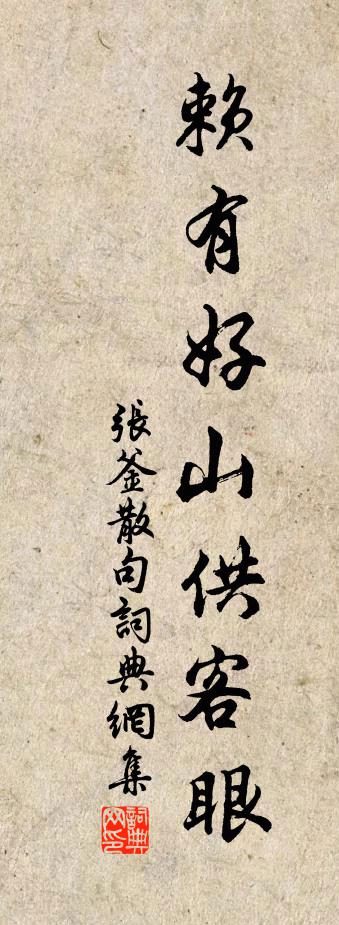 賴有好山供客眼
張釜散句詞典網集
詞典网印